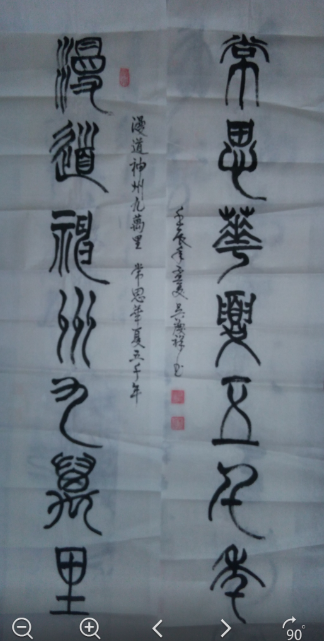 常思華夏五千年
壬辰年夏吳祥
漫道神州九萬里 常思華夏五千年
漫道神州九萬里
90°